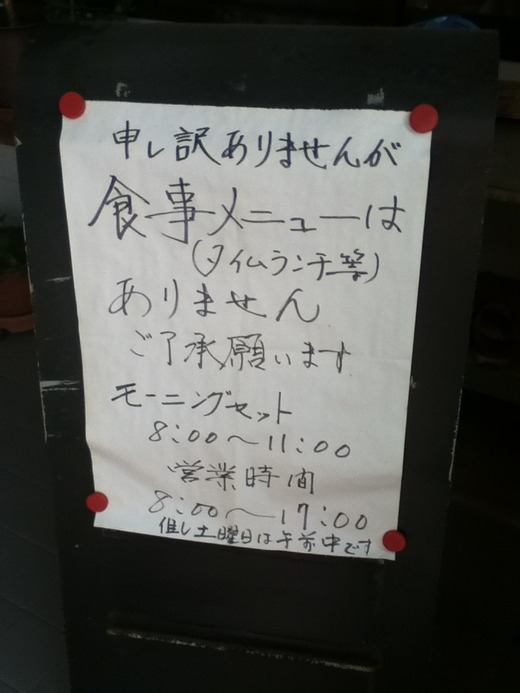 申し訳ありませんが
食事メニューは
(タイムランチ等)
ありません
ご了承願います
モーニングセット
8:00～11:00
営業時間
8:00～17:00
但し土曜日は午前中です